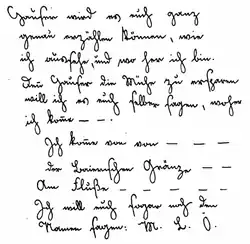 Häuser wird es euch ganz
genau erzählen können, wie
ich aussehe, und wo her ich bin.
Dem Häuser die Mühe zu ersparen
will ich es euch selber sagen, woher
ich komme — —.
Ich komme von von — — —
der Baierischen Gränze — —
Am Fluße — — — — —
Ich will euch sogar noch den
Namen sagen. M. L. Ö.